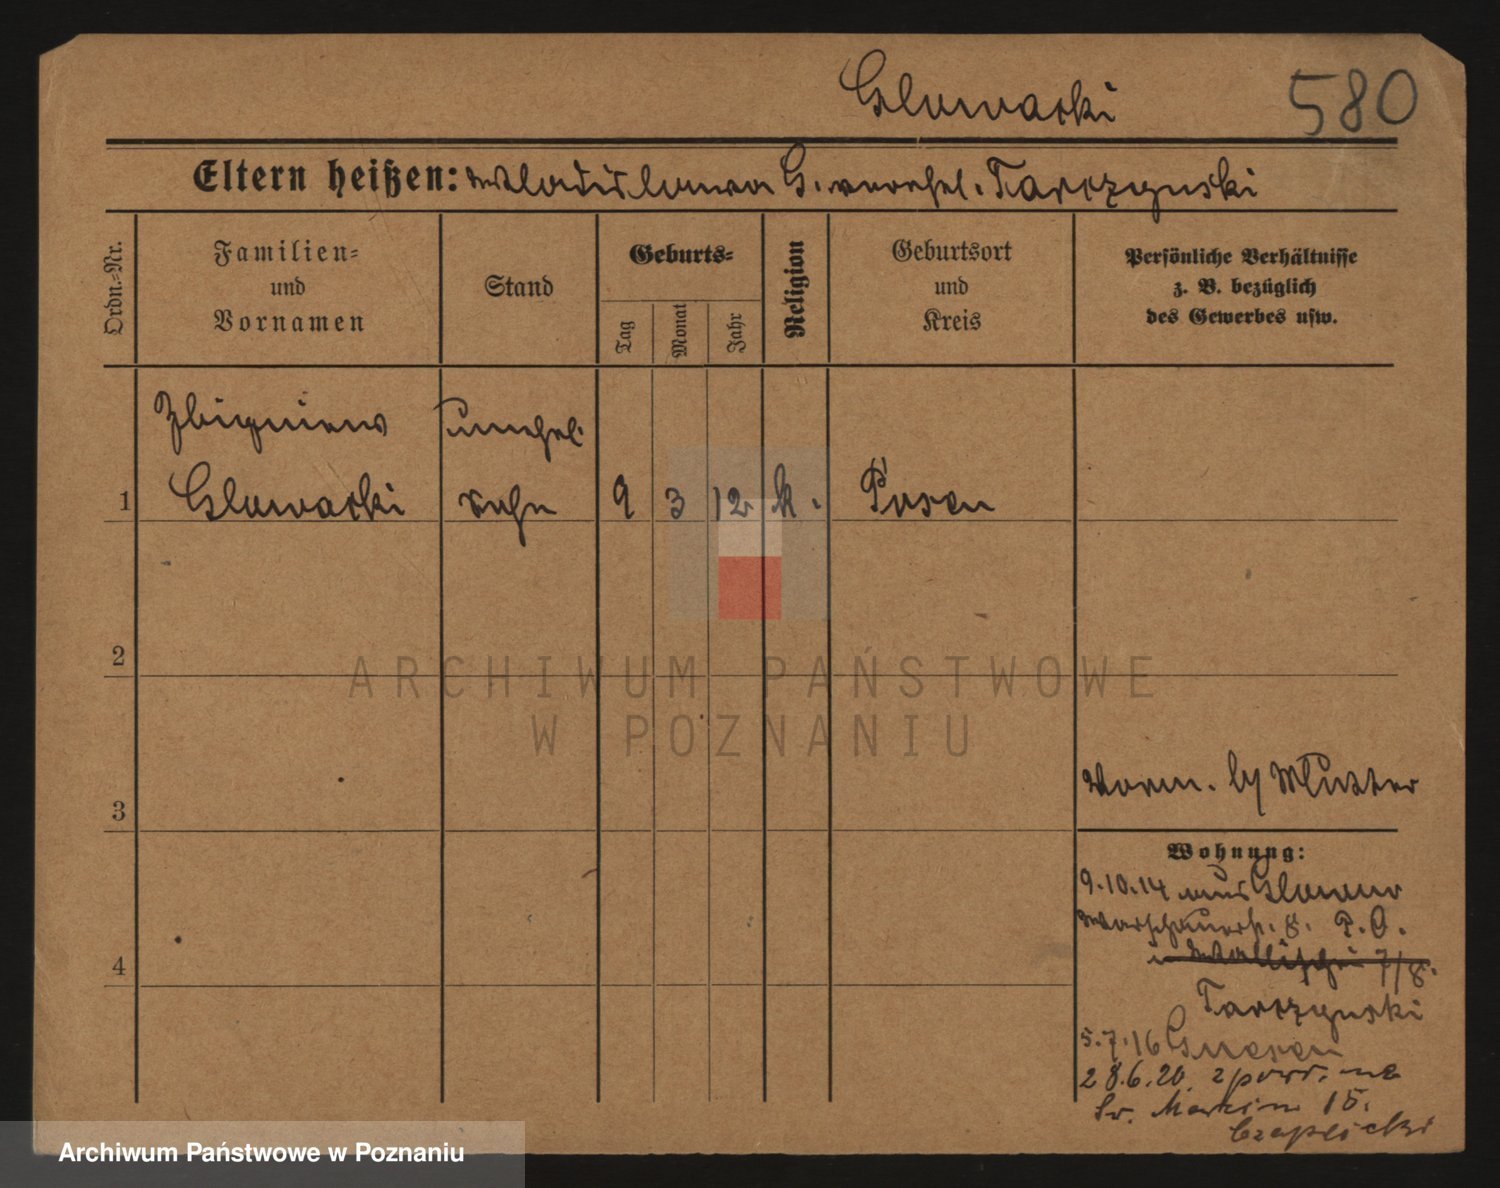 Glowacki
580
Eltern heißen: Wladislawa G. verehel. Tarczynski
Ordn.-Nr.
Familien-
und
Vornamen
Stand
Geburts-
Tag
Monat
Jahr
Religion
Geburtsort
und
Kreis
Persönliche Verhältnisse
z. B. bezüglich
des Gewerbes usw.
Zbigniew unehel.
1 Glowacki Sohn 9 3 12 k. Posen
2
ARCHIWUM PAŃSTWOWE
W POZNANIU
Vorm. Mutter
3
Wohnung:
9.10.14 aus
Warschauerstr. 8. P. O.
Wallischei 7/8.
4
Tarczynski
5.7.16 Gnesen
28.6.20. z powr. na
Św. Marcin 15.
Czaplicki
Archiwum Państwowe w Poznaniu